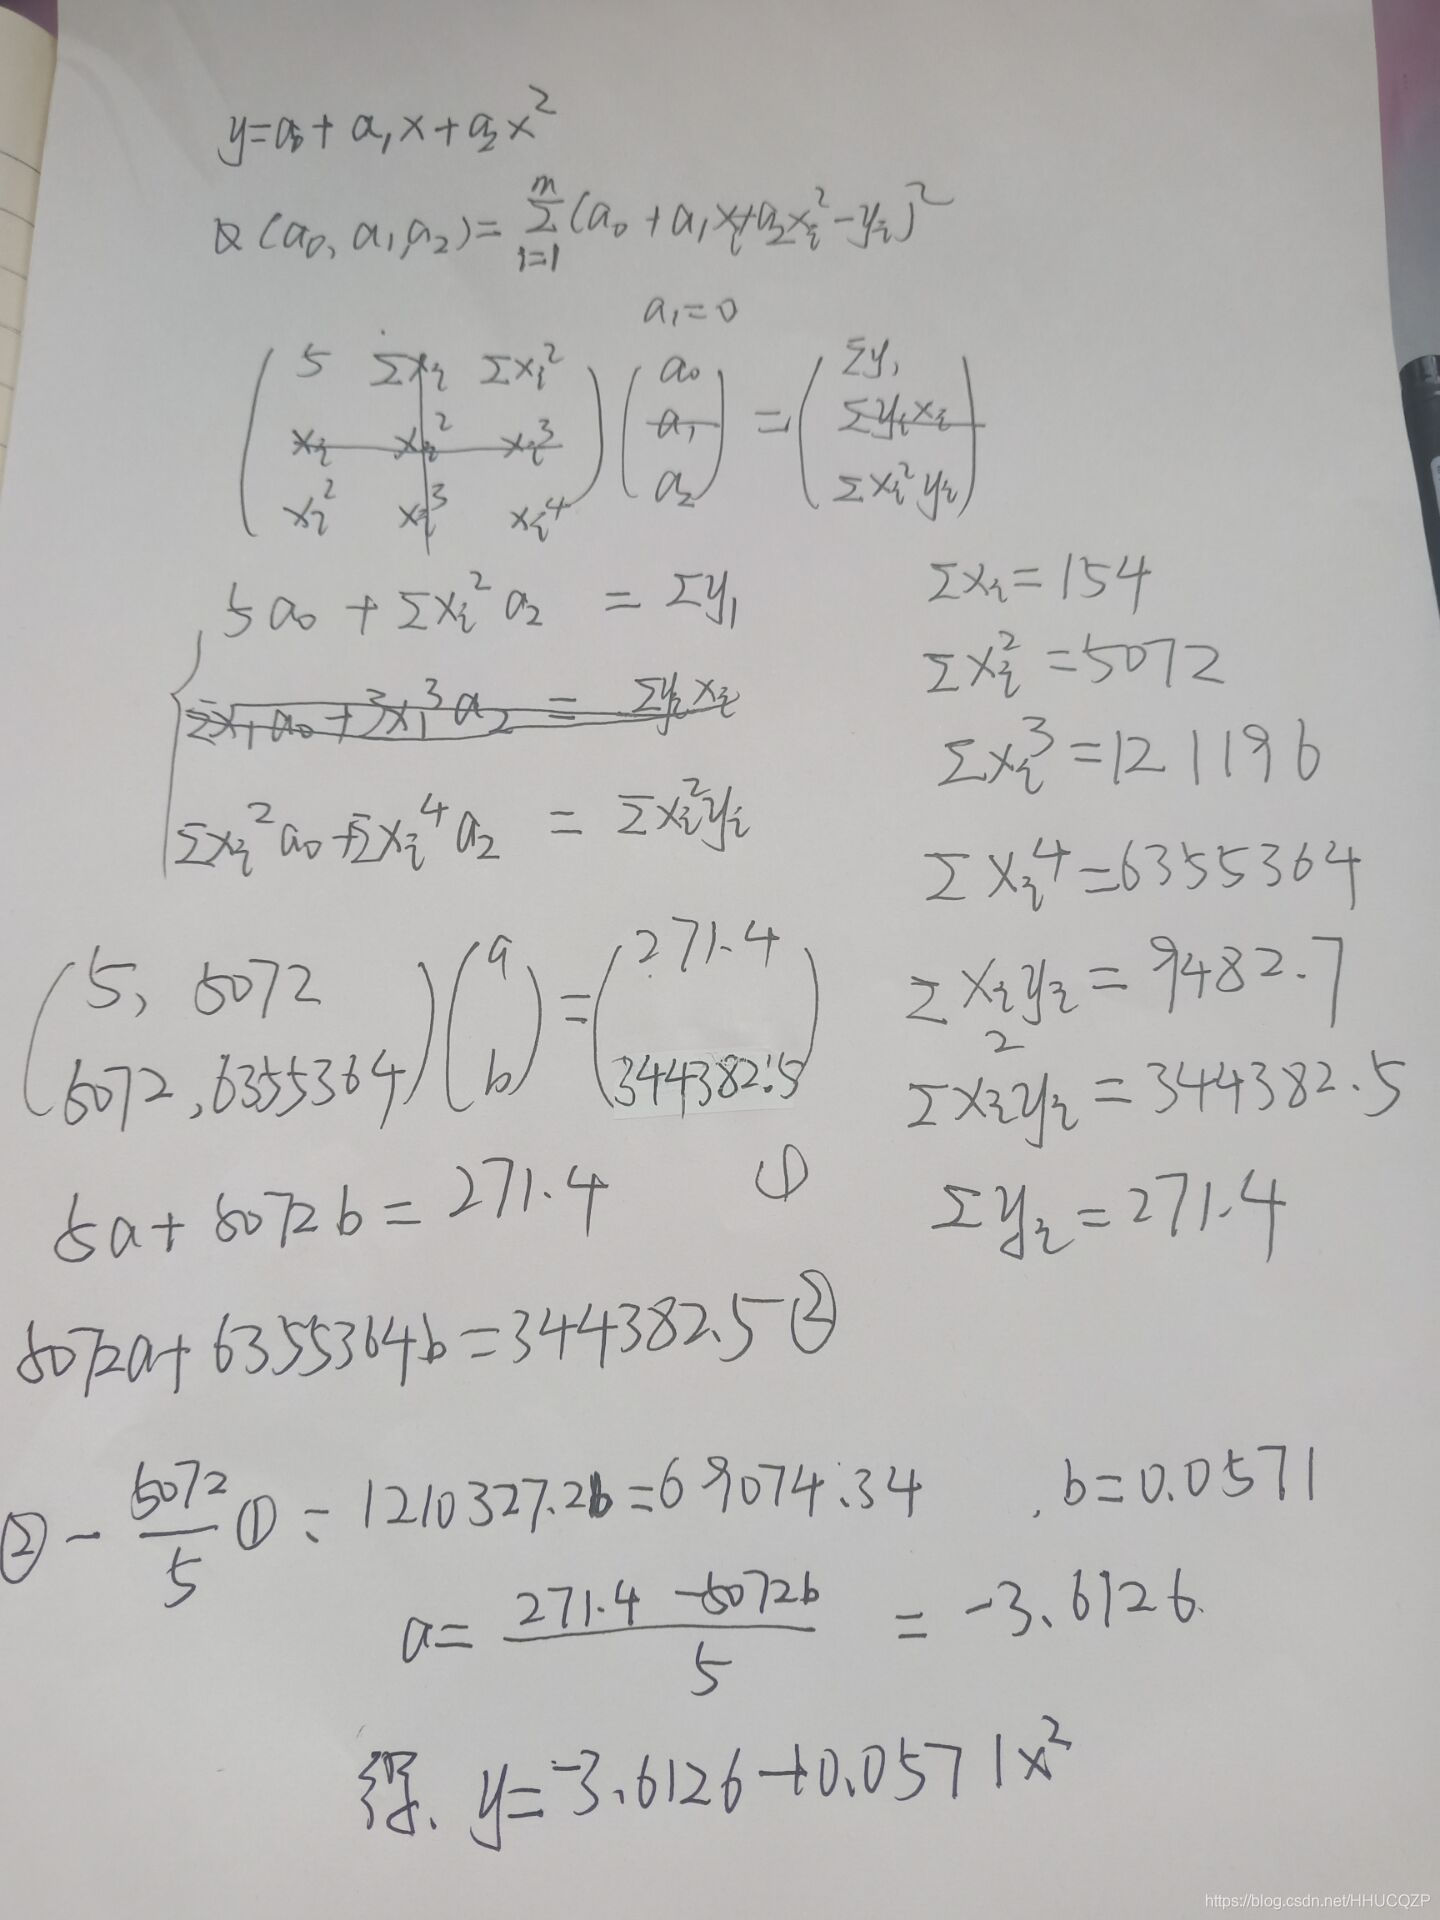 y=a₀+a₁x+a₂x²
Q(a₀,a₁,a₂)=Σᵢ₌₁ᵐ(a₀+a₁xᵢ+a₂xᵢ²-yᵢ)²
a₁=0
(5 Σxᵢ Σxᵢ²) (a₀) = (Σy₁)
(xᵢ xᵢ² xᵢ³) (a₁) (Σyᵢxᵢ)
(xᵢ² xᵢ³ xᵢ⁴) (a₂) (Σxᵢ²yᵢ)
5a₀+Σxᵢ²a₂ = Σy₁
Σx₁a₀+3x₁³a₂ = Σyᵢxᵢ
Σxᵢ²a₀+Σxᵢ⁴a₂ = Σxᵢ²yᵢ
Σxᵢ=154
Σxᵢ²=5072
Σxᵢ³=121196
Σxᵢ⁴=6355364
Σxᵢyᵢ=9482.7
Σxᵢ²yᵢ=344382.5
Σyᵢ=271.4
(5, 5072) (a) = (271.4)
(5072,6355364) (b) (344382.5)
5a+5072b=271.4 ①
5072a+6355364b=344382.5 ②
②-5072/5① = 1210327.2b=69074.34 . b=0.0571
a=(271.4-5072b)/5 = -3.6126.
得. y=-3.6126+0.0571x²
https://blog.csdn.net/HHUCQZP